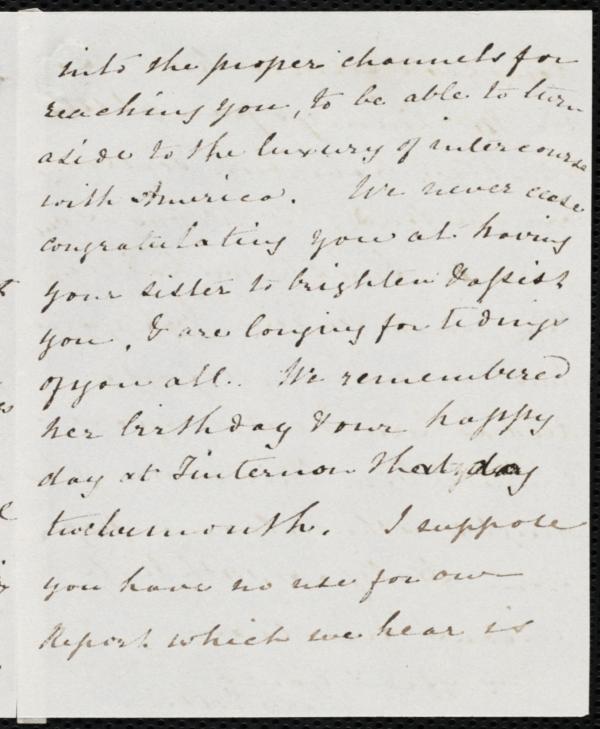 into the proper channels for
reaching you, to be able to turn
aside to the luxury of intercourse
with America. We never cease
congratulating you at having
your sister to brighten & assist
you, & are longing for tidings
of you all. We remembered
her birthday & our happy
day at Tintern on that day
twelvemonth. I suppose
you have no use for our
Report which we hear is